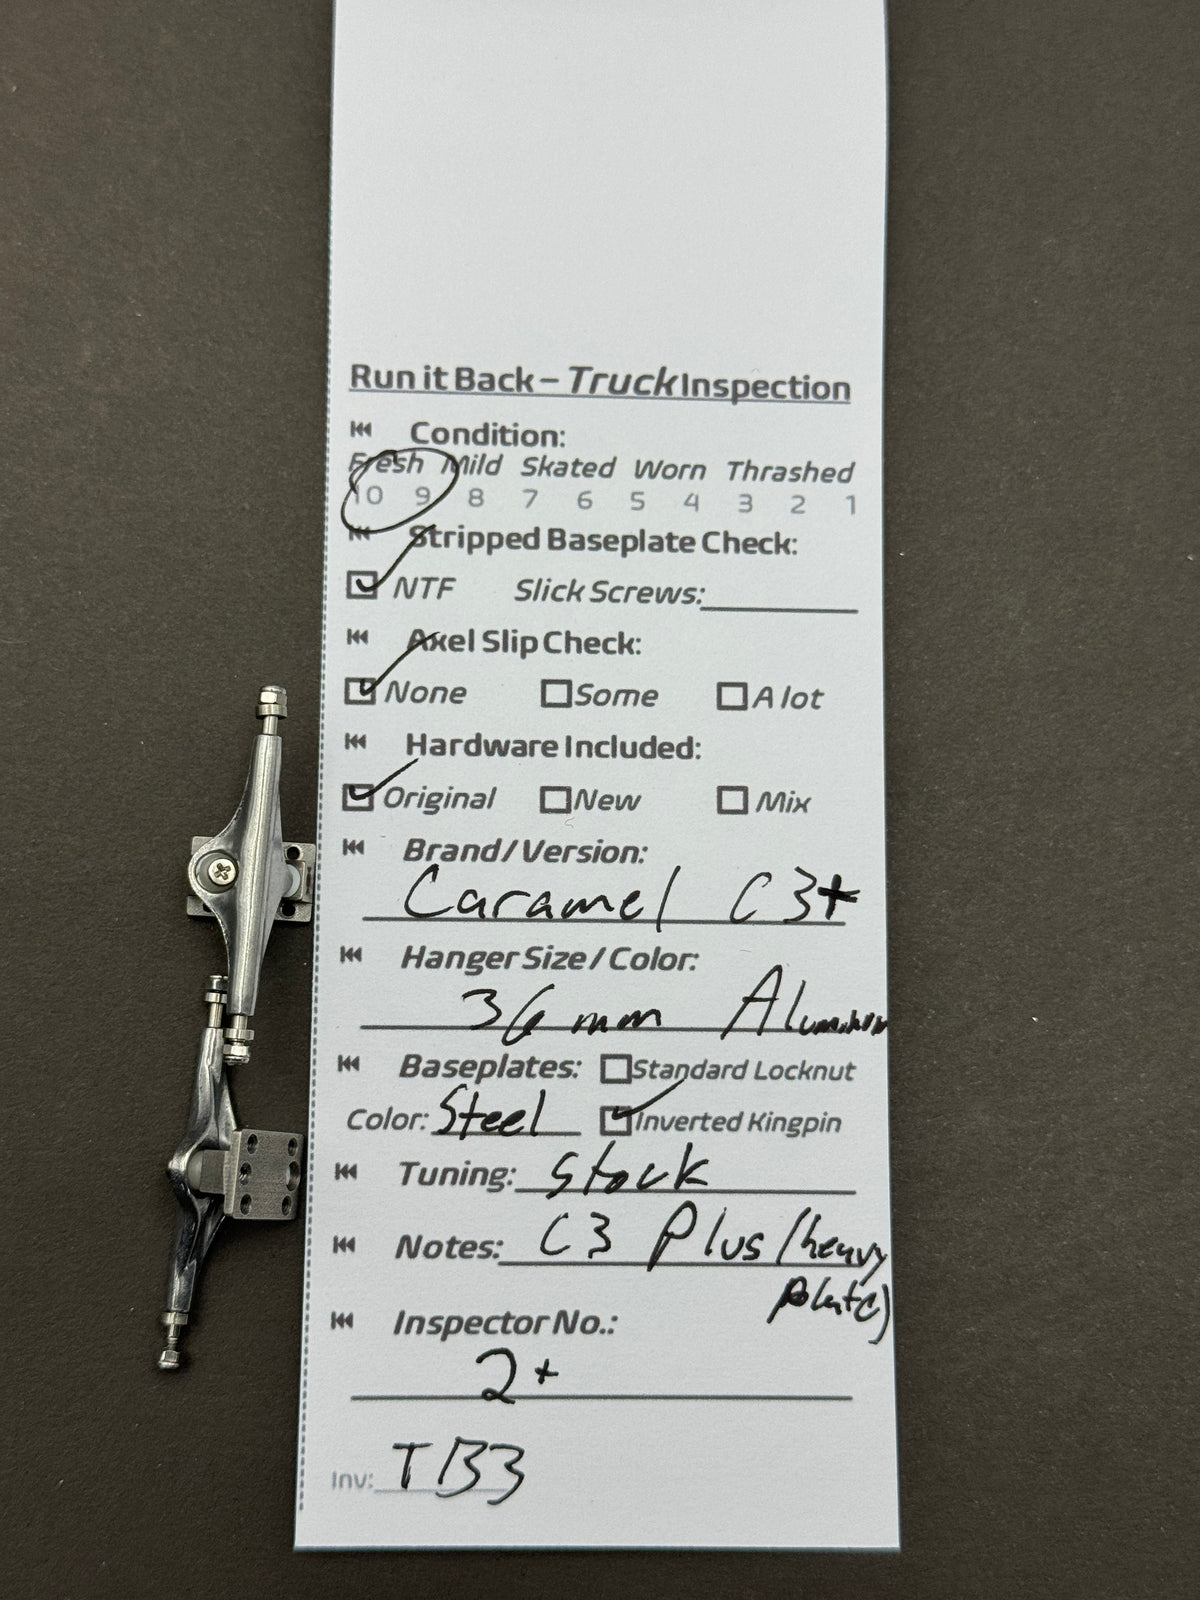 Run it Back – Truck Inspection
Condition:
Fresh Mild Skated Worn Thrashed
10 9 8 7 6 5 4 3 2 1
Stripped Baseplate Check:
NTF Slick Screws:
Axel Slip Check:
None Some A lot
Hardware Included:
Original New Mix
Brand/Version:
Caramel C3+
Hanger Size/Color:
36 mm Aluminum
Baseplates: Standard Locknut
Color: Steel Inverted Kingpin
Tuning: Stock
Notes: C3 Plus (heavy
plate)
Inspector No.:
2+
Inv: TB3